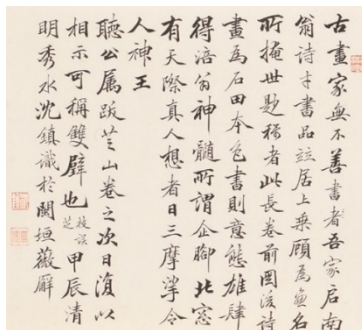 古畫家無不善書者吾家启南
翁诗才書品並居上乗顧為画名
所掩世题稱者此長卷前図後詩
畫為石田本色書則意態雄肆
得涪翁神髓所謂企腳北窓
有天際真人想者日三摩挲令
人神王
聽公属跋芝山卷之次日復以
相示可稱雙璧也 校誤芝 甲辰清
明秀水沈鎮識於閩垣薇廨